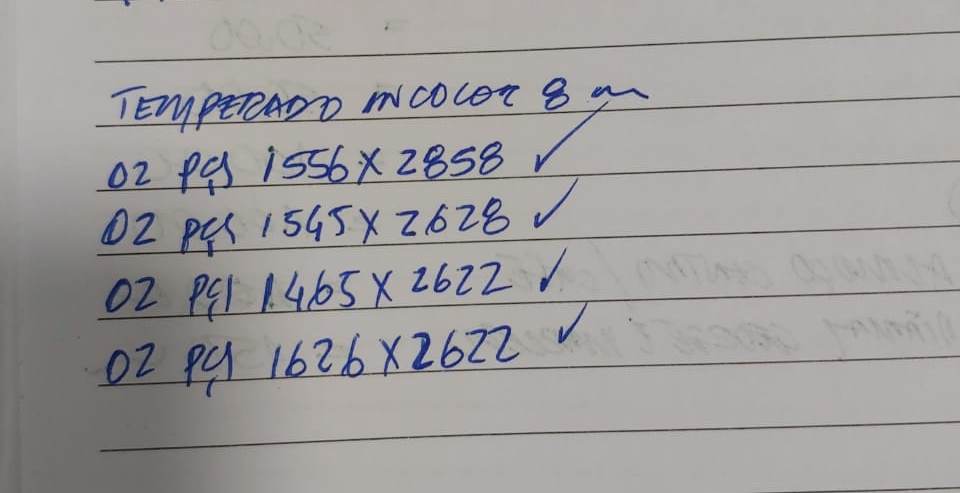 TEMPERADO INCOLOR 8 m
02 PÇS 1556 X 2858 ✓
02 PÇS 1545 X 2628 ✓
02 PÇS 1465 X 2622 ✓
02 PÇS 1626 X 2622 ✓